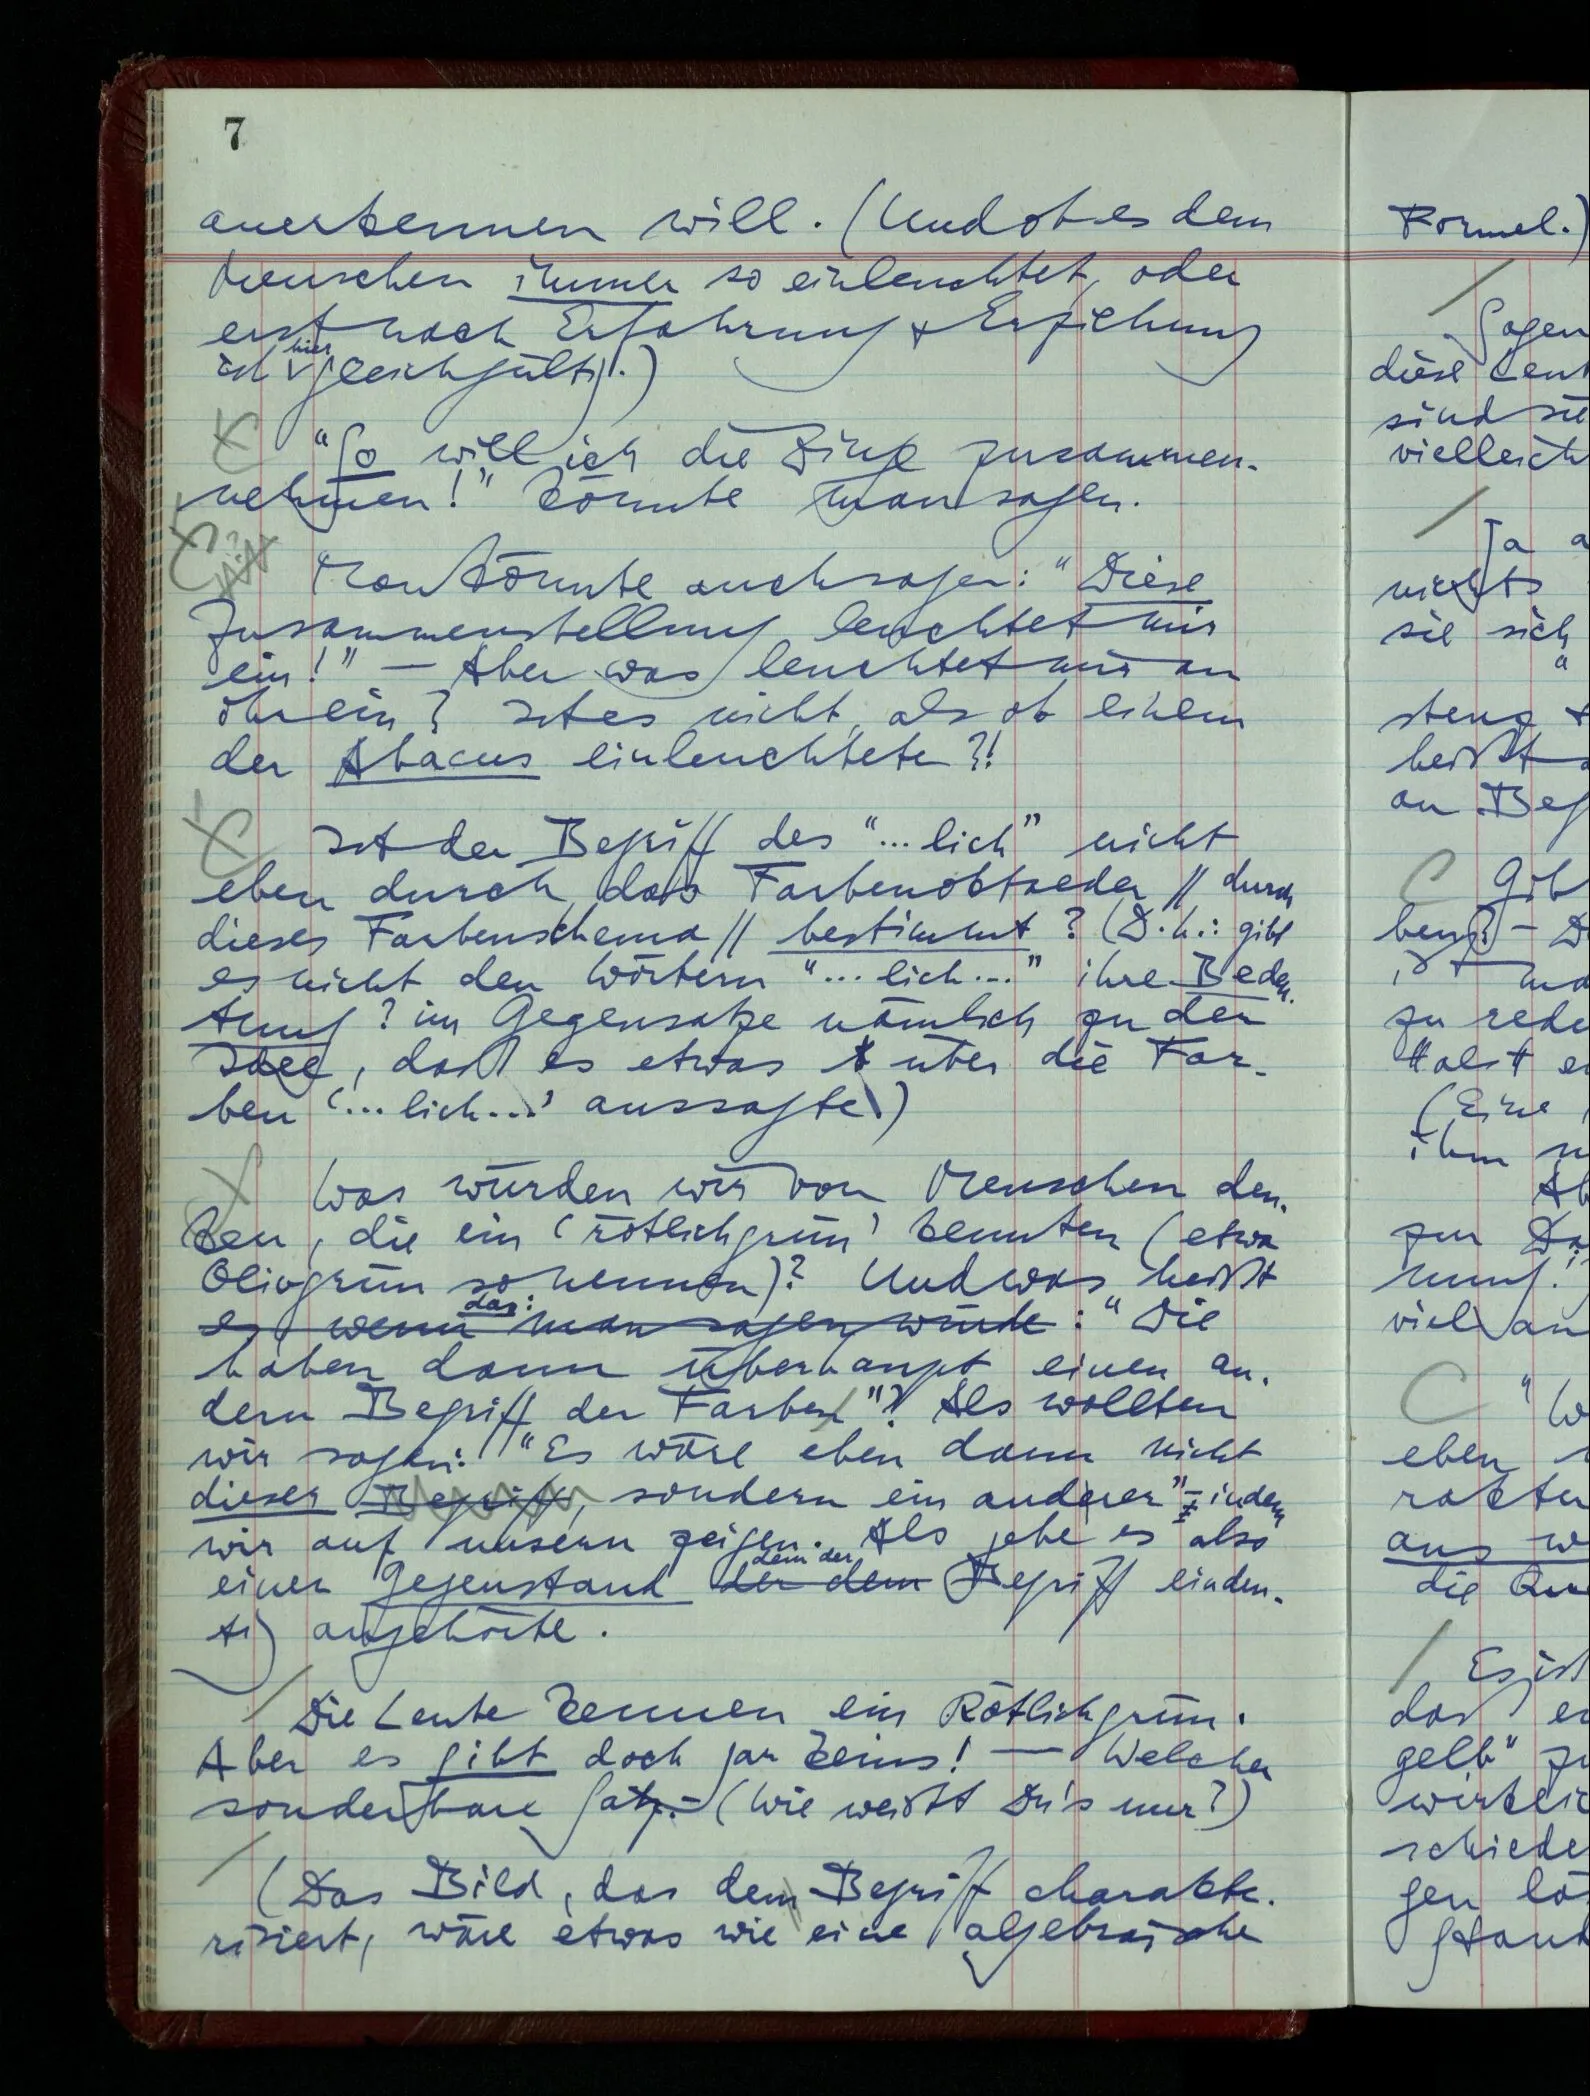 7
anerkennen will. (Und ob es dem
Menschen immer so einleuchtet, oder
erst nach Erfahrung & Erziehung
ist hier gleichgültig.)
"So will ich die Dinge zusammen-
nehmen!" könnte man sagen.
Man könnte auch sagen: "Diese
Zusammenstellung leuchtet mir
ein!" — Aber was leuchtet mir an
ihr ein? Ist es nicht, als ob einem
der Abacus einleuchtete?!
Ist der Begriff des "...lich" nicht
eben durch das Farbenoktaeder // durch
dieses Farbenschema // bestimmt? (D.h.: gibt
es nicht den Wörtern "...lich..." ihre Bedeu-
tung? im Gegensatze nämlich zu der
Idee, daß es etwas über die Far-
ben '...lich...' aussagte.)
Was würden wir von Menschen den-
ken, die ein 'rötlichgrün' kennten (etwa
Olivgrün so nennen)? Und was heißt
das:
es wenn man sagen würde: "Die
haben dann überhaupt einen an-
dern Begriff der Farbe"? Als wollten
wir sagen: "Es wäre eben dann nicht
dieser Begriff, sondern ein anderer" – indem
wir auf unsern zeigen. Als gebe es also
dem der
einen Gegenstand der dem Begriff eindeu-
tig angehörte.
Die Leute kennen ein Rötlichgrün.
Aber es gibt doch gar keins! — Welcher
sonderbare Satz. – (Wie weißt Du's nur?)
(Das Bild, das den Begriff charakte-
risiert, wäre etwas wie eine algebraische
Formel.)
Sagen
diese Leut
sind sie
vielleich
Ja a
nichts
sie sich
"
steng
heißt
an Beg
Gib
ben? – D
ist ma
zu rede
als
(Eine
ihm n
Ab
zur Da
nung!
viel an
"W
eben
rakter
aus w
die
Es ist
daß er
gelb" zu
wirklic
schiede
gen lö
stand